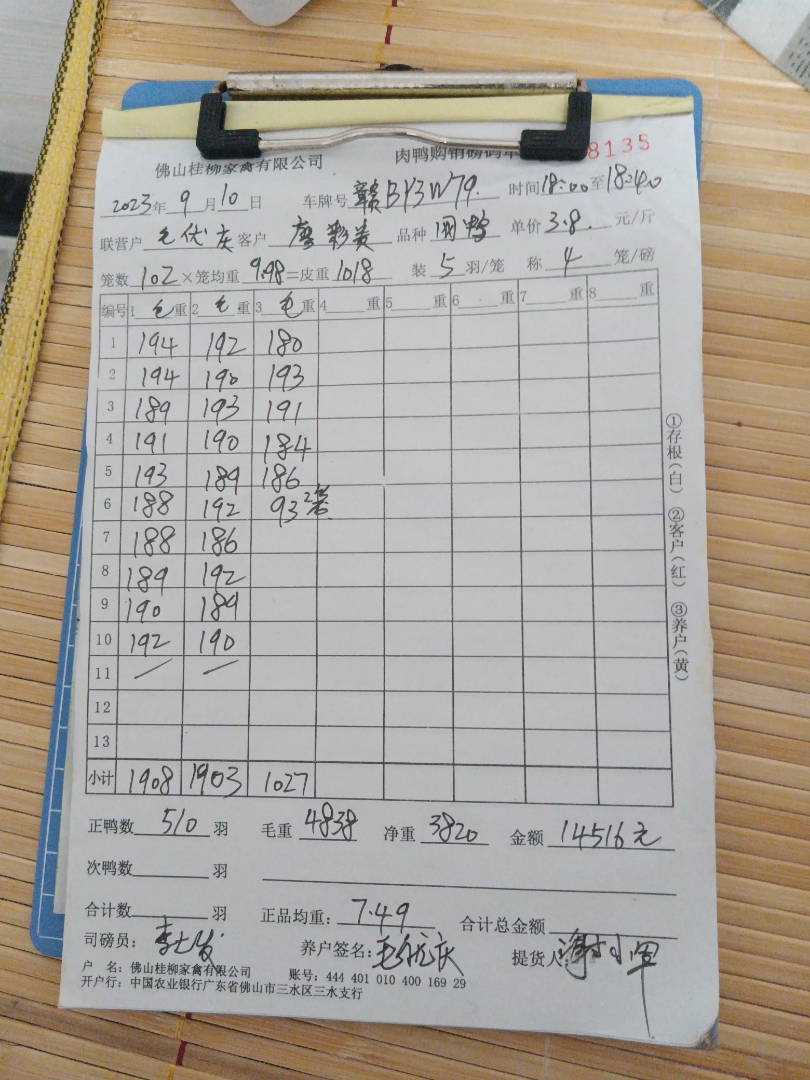 佛山桂柳家禽有限公司 肉鸭购销磅码单 8135
2023年 9月10日 车牌号 赣BY3W79. 时间18:00至18:40
联营户 毛伏庆 客户 廖彩美 品种 单价 3.8. 元/斤
笼数 102×笼均重 9.98=皮重 1018 装 5 羽/笼 称 4 笼/磅
编号 1 毛 重 2 毛 重 3 毛 重 4 重 5 重 6 重 7 重 8 重
1 194 192 180
2 194 190 193
3 189 193 191
4 191 190 184
5 193 189 186
6 188 192 93 2笼
7 188 186
8 189 192
9 190 189
10 192 190
11 / /
12
13
小计 1908 1903 1027
正鸭数 510 羽 毛重 4838 净重 3820 金额 14516元
次鸭数 羽
合计数 羽 正品均重: 7.49 合计总金额
司磅员: 养户签名: 毛伏庆 提货人:
户 名: 佛山桂柳家禽有限公司 账号: 444 401 010 400 169 29
开户行: 中国农业银行广东省佛山市三水区三水支行
①存根(白) ②客户(红) ③养户(黄)